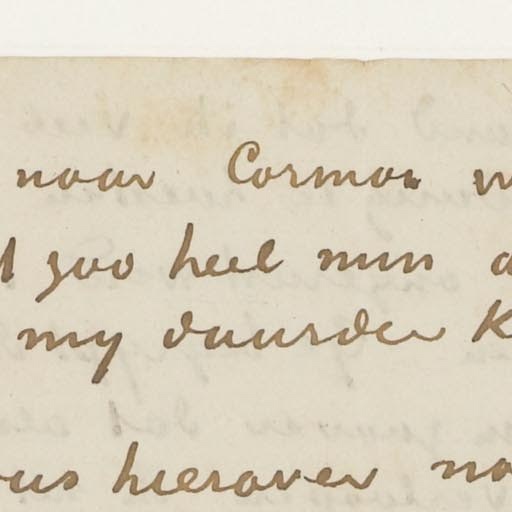 naar Cormon
zoo heel min
my duurder
hierover